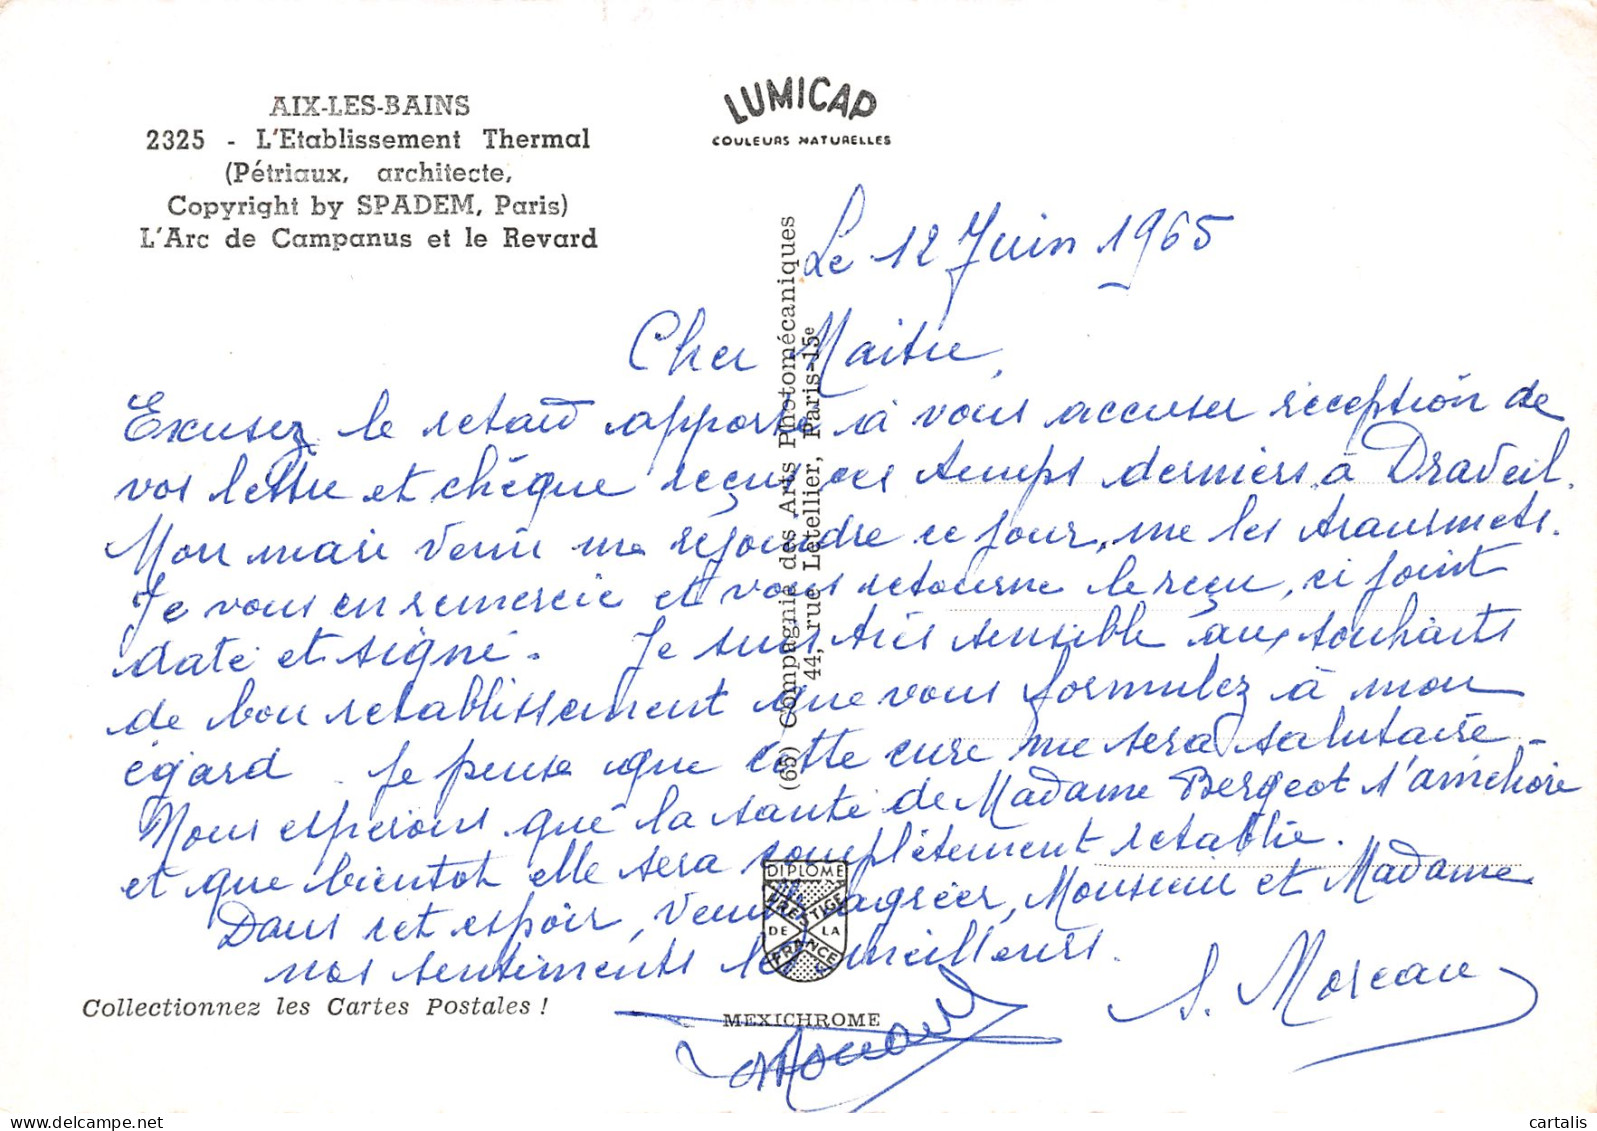 AIX-LES-BAINS
2325 - L'Etablissement Thermal
(Pétriaux, architecte,
Copyright by SPADEM, Paris)
L'Arc de Campanus et le Revard
LUMICAP
COULEURS NATURELLES
(65) Compagnie des Arts Photomécaniques
44, rue Letellier, Paris-15e
Le 12 Juin 1965
Cher Maitre,
Excusez le retard apporté à vous accuser réception de
vos lettre et chèque reçus ces temps derniers à Draveil.
Mon mari venu me rejoindre ce jour, me les transmets.
Je vous en remercie et vous retourne le reçu, ci joint
daté et signé. Je suis très sensible aux souhaits
de bon retablissement que vous formulez à mon
égard. Je pense que cette cure me sera salutaire -
Nous espérons que la santé de Madame Bergeot s'améliore
et que bientot elle sera complètement retablie.
Dans cet espoir, veuillez agréer, Monsieur et Madame
nos sentiments les meilleurs.
DIPLOME
PRESTIGE
DE LA
FRANCE
Collectionnez les Cartes Postales !
MEXICHROME
S. Moreau
Moreau
cartalis